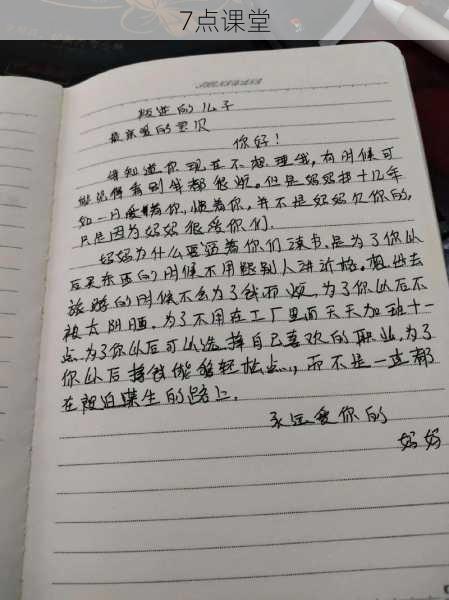 7点课堂
叛逆的儿子
最亲爱的宝贝
你好!
妈知道你现在不想理我,有时候可
能觉得看到我都很烦。但是妈妈想十几年
如一日爱着你,惯着你,并不是妈妈欠你的,
只是因为妈妈很爱你们.
妈妈为什么要逼着你们读书,是为了你以
后买东西的时候不用跟别人讲价格。想出去
旅游的时候不会为了钱而烦,为了你以后不
被太阳晒。为了不用在工厂里面天天加班十一
点,为了你以后可以选择自己喜欢的职业,为了
你以后挣钱能够轻松点,,而不是一直都
在被迫谋生的路上.
永远爱你的
妈妈